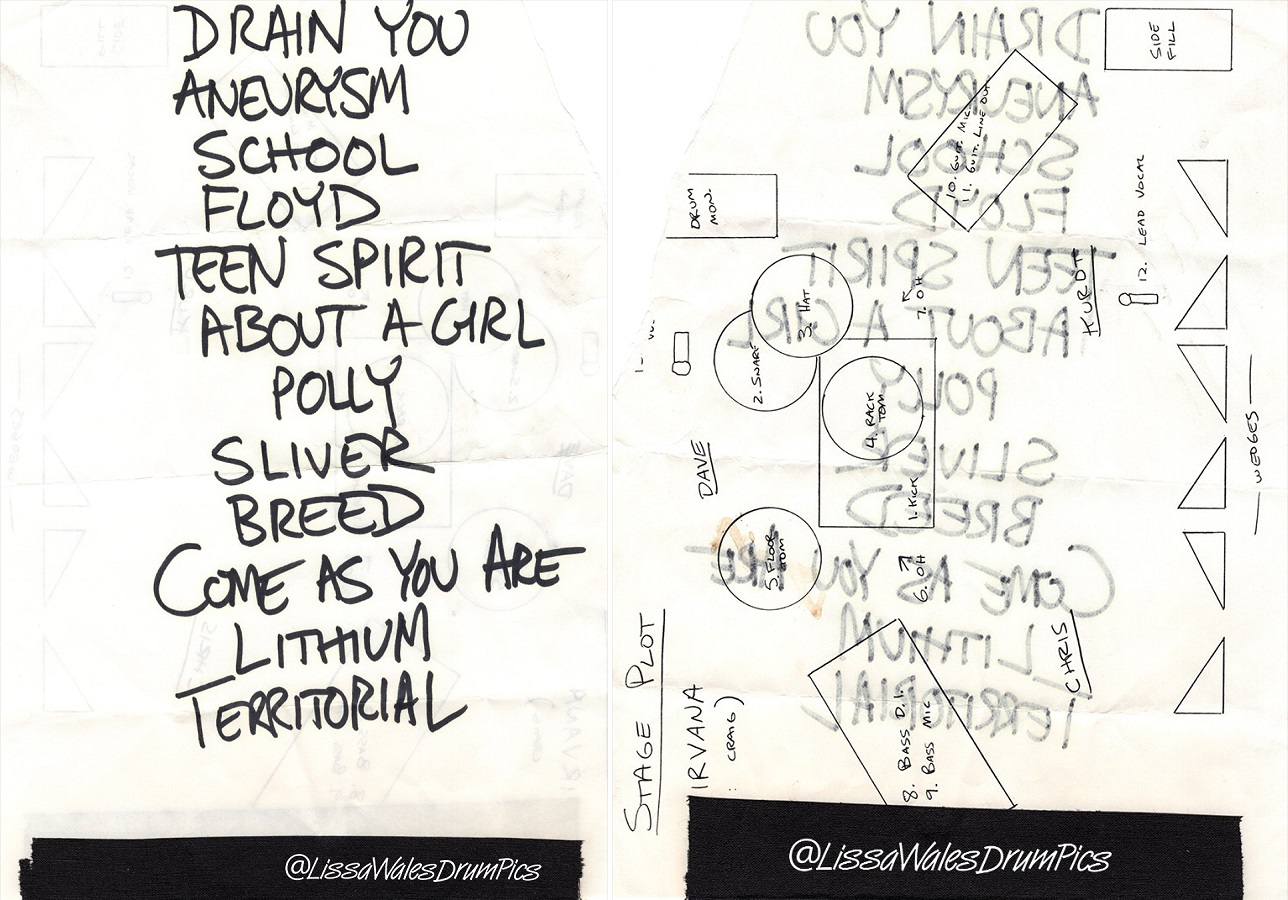 DRAIN YOU
ANEURYSM
SCHOOL
FLOYD
TEEN SPIRIT
ABOUT A GIRL
POLLY
SLIVER
BREED
COME AS YOU ARE
LITHIUM
TERRITORIAL
@LissaWalesDrumPics
SIDE
FILL
10. GUIT. MIC.
11. GUIT. LINE OUT
DRUM
MON.
12. LEAD VOCAL
KURDT
3. HAT
7. OH
2. SNARE
4. RACK
TOM
1. KICK
WEDGES
DAVE
5. FLOOR
TOM
6. OH
CHRIS
STAGE PLOT
IRVANA
: CRAIG)
8. BASS D.I.
9. BASS MIC
@LissaWalesDrumPics